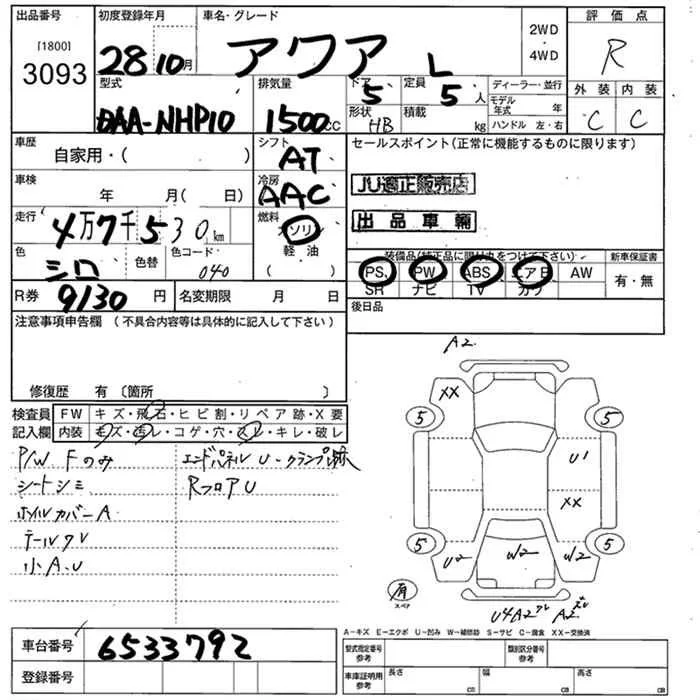 出品番号
[1800]
3093
初度登録年月
28 10月
車名・グレード
アクア L
2WD
・
4WD
評価点
R
外装 内装
C C
型式
DAA-NHP10
排気量
1500cc
ドア
5
定員
5人
形状
HB
積載
kg
ディーラー・並行
モデル年式 年
ハンドル 左・右
車歴
自家用・( )
シフト
AT
車検
年 月(日)
冷房
AAC
走行
4万7千530km
燃料
ガソリン
軽・油
色
シロ
色替
色コード
040
R券
9130円
名変期限 月 日
セールスポイント(正常に機能するものに限ります)
JU適正販売店
出品車輛
装備品(純正品に限り丸をつけて下さい)
新車保証書
PS PW ABS エアB AW
SR ナビ TV カワ
有・無
後日品
注意事項申告欄(不具合内容等は具体的に記入して下さい)
修復歴 有〔箇所 〕
検査員
記入欄
FW キズ・飛石・ヒビ割・リペア跡・X要
内装 キズ・汚レ・コゲ・穴・スレ・キレ・破レ
P/W Fのみ
シートシミ
ホイルカバーA
テールワレ
小A.U
エンドパネルU-クランプ跡
RフロアU
A2
XX
5
5
U1
XX
5
5
U2
W2
W2
有
スペア
U4A2ワレ A2
A-キズ E-エクボ U-凹み W-補修跡 S-サビ C-腐食 XX-交換済
車台番号
6533792
登録番号
型式指定番号
参考
類別区分番号
参考
車庫証明用
参考
長さ
cm
幅
cm
高さ
cm